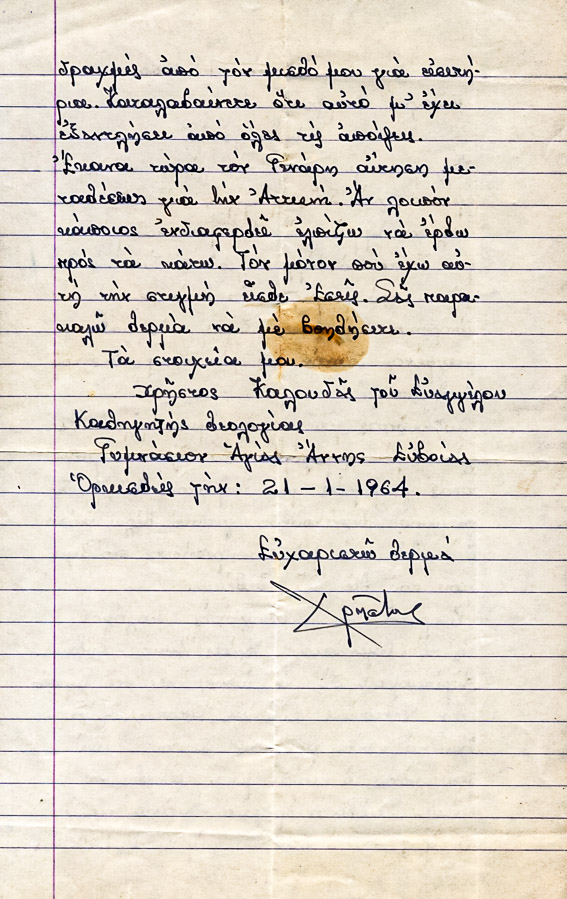 δραχμές ἀπό τόν μισθό μου γιά εἰσιτή-
ρια. Καταλαβαίνετε ὅτι αὐτό μ' ἔχει
ἐξαντλήσει ἀπό ὅλες τίς ἀπόψεις.
Ἔκανα τώρα τόν Γενάρη αἴτηση με-
ταθέσεως γιά τήν Ἀττική. Ἄν λοιπόν
κάποιος ἐνδιαφερθεῖ ἐλπίζω νά ἔρθω
πρός τά κάτω. Τόν μόνον πού ἔχω αὐ-
τή τήν στιγμή εἶσθε Ἐσεῖς. Σᾶς παρα-
καλῶ θερμά νά μέ βοηθήσετε.
Τά στοιχεῖα μου.
Χρῆστος Καλουδᾶς τοῦ Εὐαγγέλου
Καθηγητής θεολογίας
Γυμνάσιον Ἁγίας Ἄννης Εὐβοίας
Ὁρκισθείς τήν: 21-1-1964.
Εὐχαριστῶ θερμά